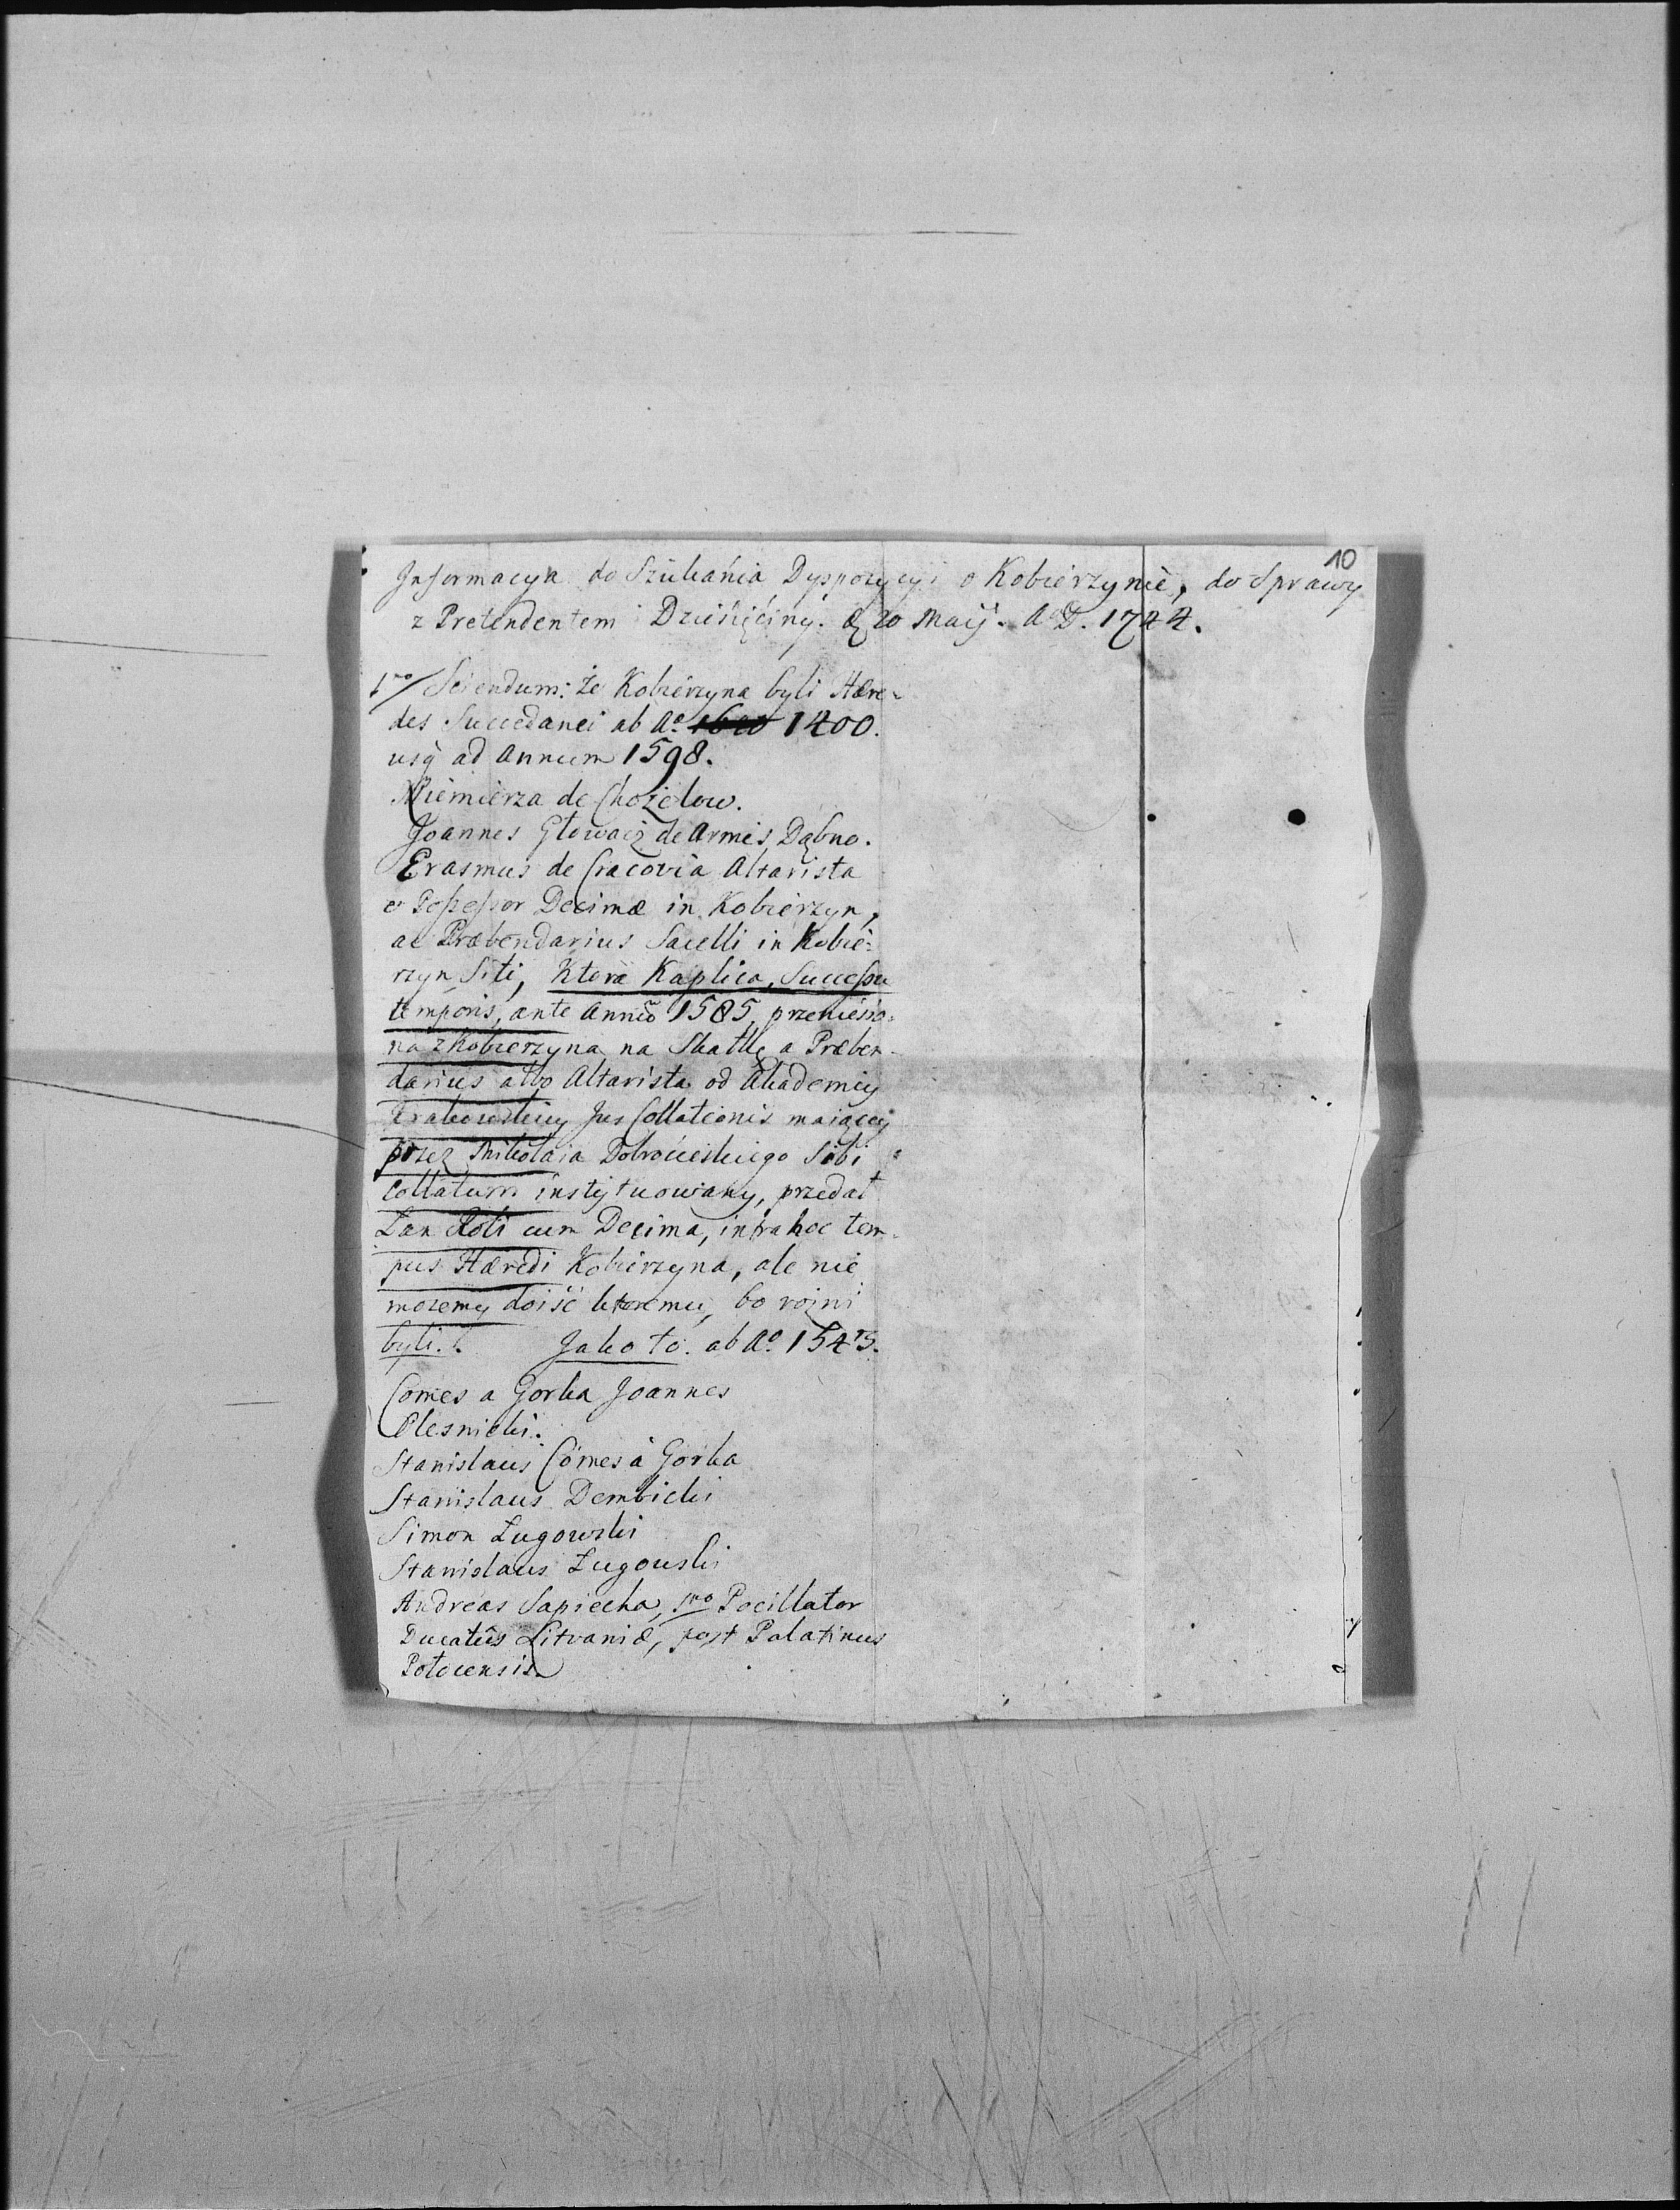 10
Informacya do Szukánia Dyspozycyi o Kobierzynie, do Sprawy
z Pretendentem Dziesięciny. 20 Maij. A D. 1744.
1mo/ Sciendum: że Kobierzyna byli Hære-
des Succedanei ab Ao. 1400.
usq ad Annum 1598.
Niemierza de Chożelow.
Joannes Głowacz de Armis Dąbno.
Erasmus de Cracovia Altarista
et Possessor Decimæ in Kobierzyn,
ac Præbendarius Sacelli in Kobie-
rzyn Siti, Ktora Kaplica, Successu
temporis, ante Annũ 1585, przeniesio-
na z Kobierzyna na Skałkę a Præben-
darius albo Altarista od Akademiy
Krakowskiey Jus Collationis maiącey
przez Mikołaia Dobrocieskiego Sibi
Collatum instytuowany, przedał
Łan Roli cum Decima, intra hoc tem-
pus Hæredi Kobierzyna, ale nie
mozemy doiść ktoremu, bo rożni
byli. Jako to. ab Ao. 1545.
Comes a Gorka Joannes
Olesnicki.
Stanislaus Comes à Gorka
Stanislaus Dembicki
Simon Ługowski
Stanislaus Ługowski
Andreas Sapiecha, 1mo Pocillator
Ducatûs Litvaniæ, post Palatinus
Polocensis